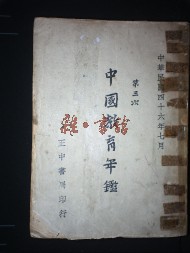 中華民國四十六年七月
第三次
中國教育年鑑
正中書局印行